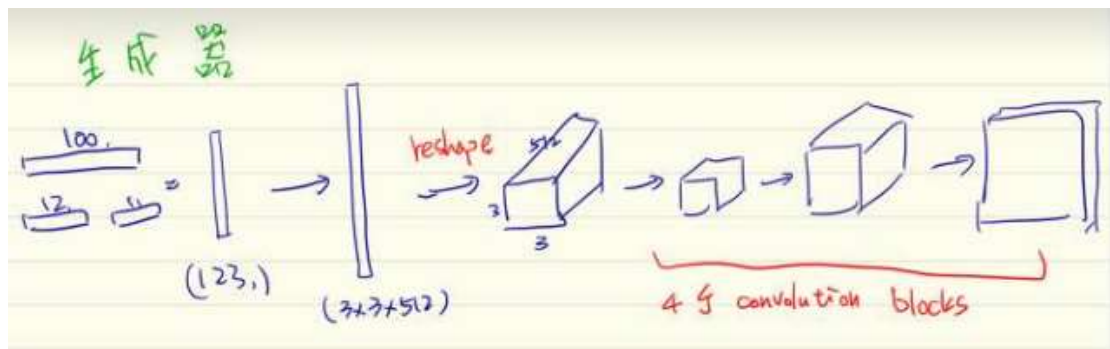 生成器
100,
12, 11,
=
(123,)
(3×3×512)
reshape
512
3
3
4个 convolution blocks